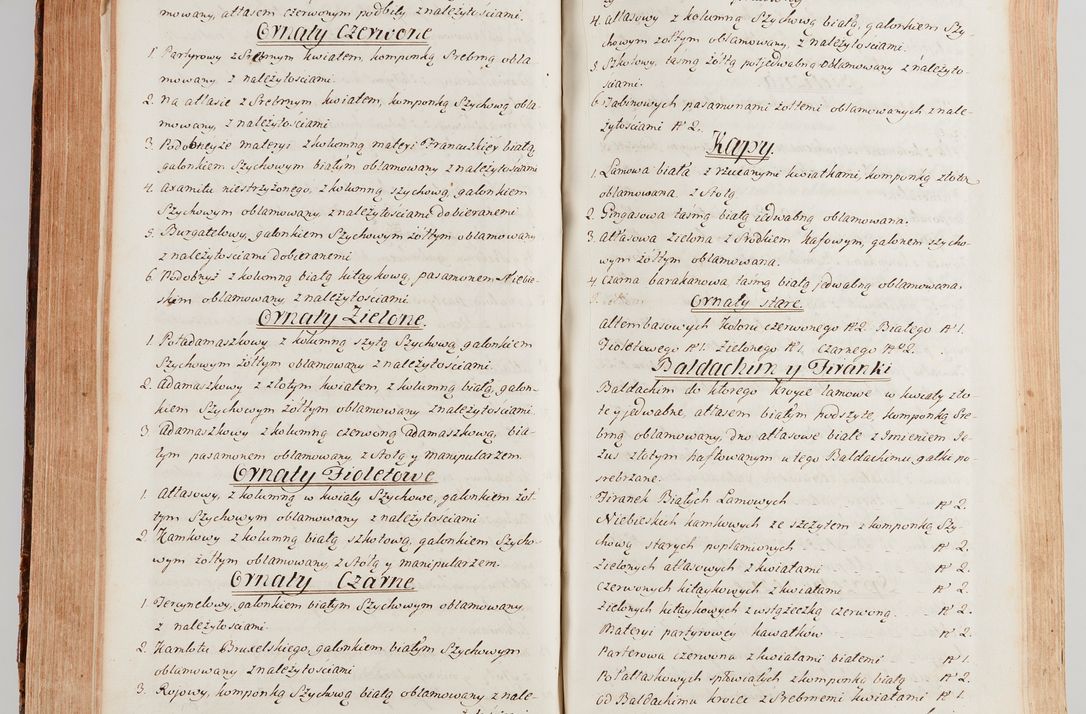 mowany, atłasem czerwonym podbity, z należytościami.
Ornaty Czerwone
1. Partyrowy z Srebrnym kwiatem, komponką Srebrną obla-
mowany, z należytościami.
2. Na atłasie z Srebrnym kwiatem, komponką Szychową obla-
mowany, z należytościami
3. Podobneyże materyi z kolumną materi Francuzkiey białą,
galonkiem Szychowym białym oblamowany z należytościami
4. Axamitu niestrzyżonego, z kolumną szychową, galonkiem
Szychowym oblamowany z należytościami dobieranemi
5. Burgatelowy, galonkiem Szychowym żółtym oblamowany
z należytościami dobieranemi
6. Podobnyż z kolumną białą kitaykową, pasamonem Niebie-
skim oblamowany, z należytościami
Ornaty Zielone.
1. Potadamaszkowy z kolumną szytą Szychową, galonkiem
Szychowym żółtym oblamowany z należytościami.
2. Adamaszkowy z złotym kwiatem, z kolumną białą, galon-
kiem Szychowym żółtym oblamowany z należytościami.
3 Adamaszkowy z kolumną czerwoną Adamaszkową, bia-
łym pasamonem oblamowany, z Stołą y manipularzem.
Ornaty Fioletowe
1. Atłasowy, z kolumną w kwiaty Szychowe, galonkiem żoł-
tym Szychowym oblamowany z należytościami
2 Kamkowy z kolumną białą szkotową, galonkiem Szycho-
wym żołtym oblamowany, z Stołą y manipularzem.
Ornaty Czarne
1. Tercynelowy, galonkiem białym Szychowym oblamowany
z należytościami.
2. Kamlotu Bruxelskiego, galonkiem białym Szychowym
oblamowany z należytościami
3. Rajowy, komponką Szychową białą oblamowany z nale-
4. Atłasowy z kolumną Szychową białą, galonkiem Szy-
chowym żółtym oblamowany, z należytościami.
5. Szkotowy, taśmą żółtą połjedwabną oblamowany z należyto-
ściami.
6 Zabinowych pasamonami żółtemi oblamowanych z nale-
żytościami No 2.
Kapy.
1. Lamowa biała z rzucanymi kwiatkami, komponką złotą
oblamowana. z Stołą
2. Gingasowa taśmą białą jedwabną oblamowana.
3. Atłasowa zielona z Srodkiem hafowym, galonem szycho-
wym żółtym oblamowana.
4 Czarna barakanowa, taśmą białą jedwabną oblamowana.
Ornaty stare.
Altembasowych Koloru czerwonego No 2. Białego No 1.
Fioletowego No 1. Zielonego No 1. Czarnego No 2.
Baldachim y Firanki
Baldachim do ktorego kroyce lamowe w kwiaty zło-
te y jedwabne, atłasem białym podszyte, komponką Sre-
brną oblamowany, dno atłasowe białe z Imieniem Je-
zus złotym haftowanym u tego Baldachimu, gałki po-
srebrzane.
Firanek Białych Lamowych No 2.
Niebieskich kamkowych ze szczytem z komponką Szy-
chową starych poplamionych No 2.
Zielonych atłasowych z kwiatami No 2.
Czerwonych kitaykowych z kwiatami No 2.
Zielonych kitaykowych z wstążeczką czerwoną No 2.
Materyi partyrowey kawałkow No 2.
Parterowa czerwona z kwiatami białemi No 1.
Połatłaskowych spłowiałych z komponką białą No 2.
Od Baldachimu kroice z Srebrnemi kwiatami No 1.